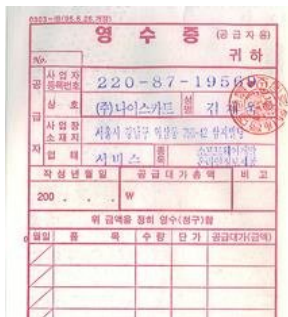 0303- (95.6.28.개정)
영 수 증 (공급자용)
No. 귀하
공급자
사업자등록번호 220-87-19569
상호 (주)나이스카드 성명 김
사업장소재지 서울시 강남구
업태 서비스 종목
작성년월일 공급대가총액 비고
200 . . . ₩
위 금액을 정히 영수(청구)함
월일 품 목 수량 단가 공급대가(금액)